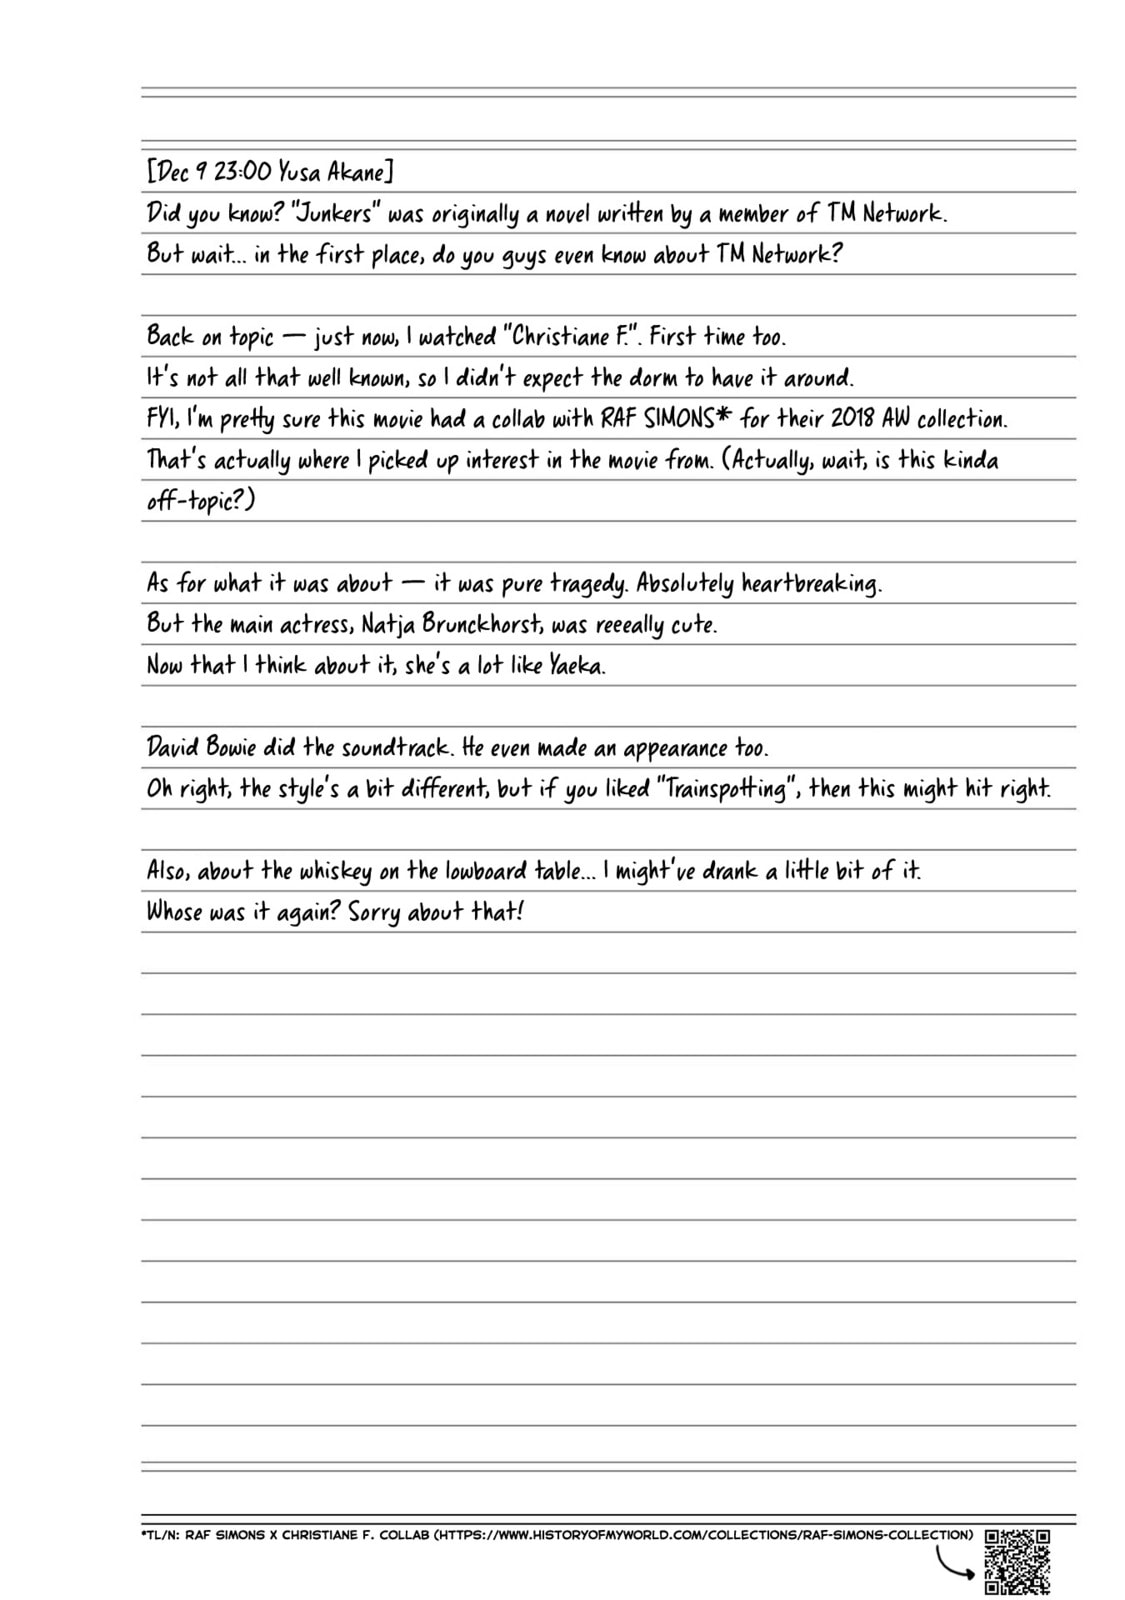 [Dec 9 23:00 Yusa Akane]
Did you know? "Junkers" was originally a novel written by a member of TM Network.
But wait... in the first place, do you guys even know about TM Network?
Back on topic — just now, I watched "Christiane F.". First time too.
It's not all that well known, so I didn't expect the dorm to have it around.
FYI, I'm pretty sure this movie had a collab with RAF SIMONS* for their 2018 AW collection.
That's actually where I picked up interest in the movie from. (Actually, wait, is this kinda
off-topic?)
As for what it was about — it was pure tragedy. Absolutely heartbreaking.
But the main actress, Natja Brunckhorst, was reeeally cute.
Now that I think about it, she's a lot like Yaeka.
David Bowie did the soundtrack. He even made an appearance too.
Oh right, the style's a bit different, but if you liked "Trainspotting", then this might hit right.
Also, about the whiskey on the lowboard table... I might've drank a little bit of it.
Whose was it again? Sorry about that!
*TL/N: RAF SIMONS X CHRISTIANE F. COLLAB (HTTPS://WWW.HISTORYOFMYWORLD.COM/COLLECTIONS/RAF-SIMONS-COLLECTION)